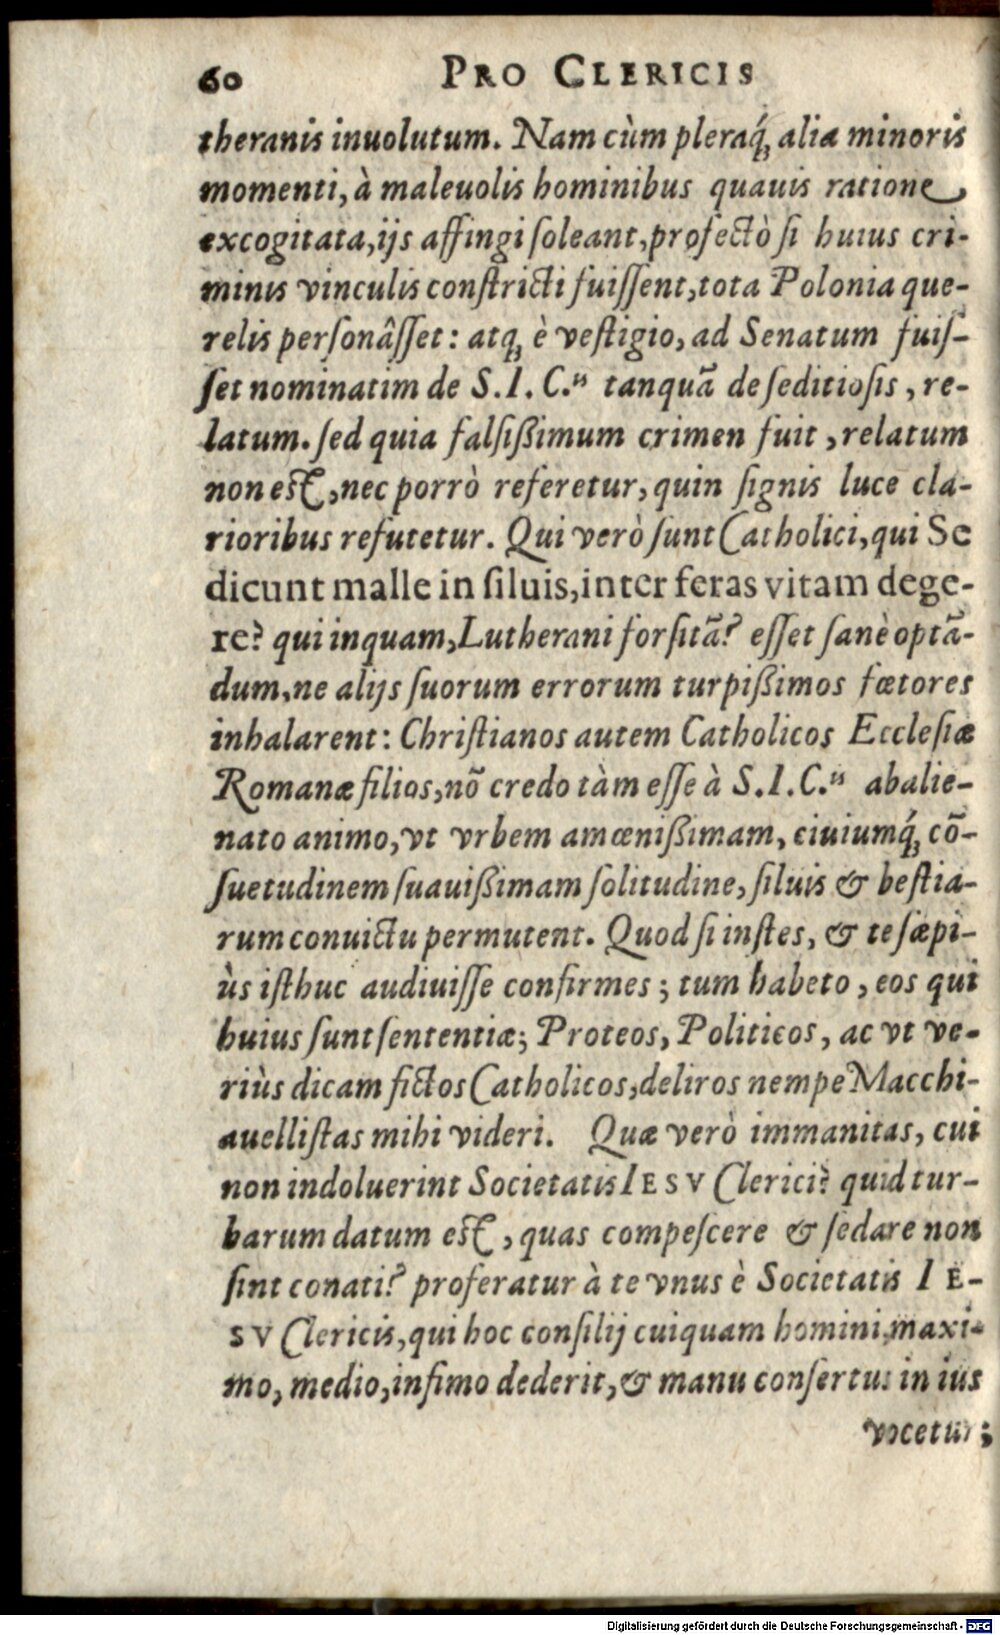 60 PRO CLERICIS
theranis inuolutum. Nam cùm pleraq́; alia minoris
momenti, à maleuolis hominibus quauis ratione
excogitata, ijs affingi ſoleant, profectò ſi huius cri-
minis vinculis conſtricti fuiſſent, tota Polonia que-
relis perſonâſſet: atq; è veſtigio, ad Senatum fuiſ-
ſet nominatim de S. I. C.is tanquã de ſeditioſis, re-
latum. ſed quia falſißimum crimen fuit, relatum
non eſt, nec porrò referetur, quin ſignis luce cla-
rioribus refutetur. Qui verò ſunt Catholici, qui Se
dicunt malle in ſiluis, inter feras vitam dege-
re? qui inquam, Lutherani forſitã? eſſet ſanè optã-
dum, ne alijs ſuorum errorum turpißimos fœtores
inhalarent: Chriſtianos autem Catholicos Eccleſiæ
Romanæ filios, nõ credo tàm eſſe à S. I. C.is abalie-
nato animo, vt vrbem amœnißimam, ciuiumq́; cõ-
ſuetudinem ſuauißimam ſolitudine, ſiluis & beſtia-
rum conuictu permutent. Quod ſi inſtes, & te ſæpi-
ùs iſthuc audiuiſſe confirmes; tum habeto, eos qui
huius ſunt ſententiæ; Proteos, Politicos, ac vt ve-
riùs dicam fictos Catholicos, deliros nempe Macchi-
auelliſtas mihi videri. Quæ verò immanitas, cui
non indoluerint Societatis IESV Clerici? quid tur-
barum datum eſt, quas compeſcere & ſedare non
ſint conati? proferatur à te vnus è Societatis IE-
SV Clericis, qui hoc conſilij cuiquam homini, maxi-
mo, medio, infimo dederit, & manu conſertus in ius
vocetur;
Digitalisierung gefördert durch die Deutsche Forschungsgemeinschaft - DFG